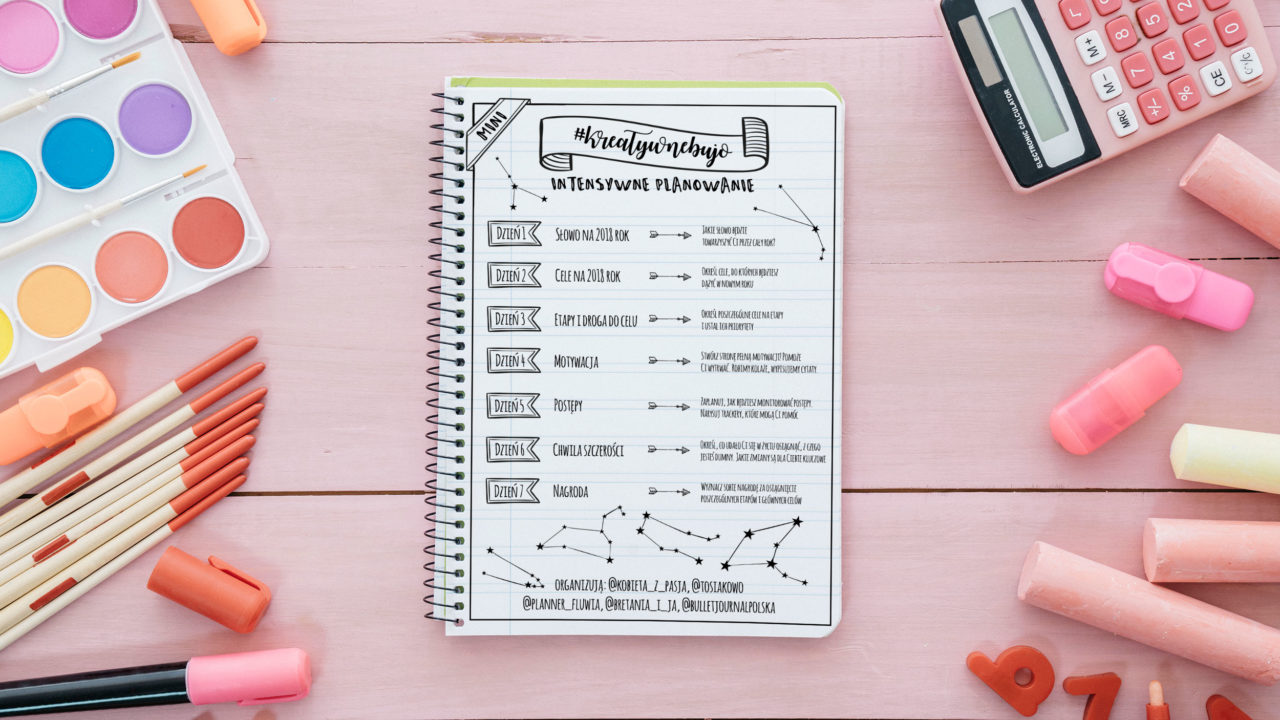 MINI
#kreatywnebujo
INTENSYWNE PLANOWANIE
DZIEŃ 1 SŁOWO NA 2018 ROK JAKIE SŁOWO BĘDZIE
TOWARZYSZYĆ CI PRZEZ CAŁY ROK?
DZIEŃ 2 CELE NA 2018 ROK OKREŚL CELE, DO KTÓRYCH BĘDZIESZ
DĄŻYĆ W NOWYM ROKU
DZIEŃ 3 ETAPY I DROGA DO CELU OKREŚL POSZCZEGÓLNE CELE NA ETAPY
I USTAL ICH PRIORYTETY
DZIEŃ 4 MOTYWACJA STWÓRZ STRONĘ PEŁNĄ MOTYWACJI! POMOŻE
CI WYTRWAĆ. ROBIMY KOLAŻE, WYPISUJEMY CYTATY.
DZIEŃ 5 POSTĘPY ZAPLANUJ, JAK BĘDZIESZ MONITOROWAĆ POSTĘPY.
NARYSUJ TRACKERY, KTÓRE MOGĄ CI POMÓC
DZIEŃ 6 CHWILA SZCZEROŚCI OKREŚL, CO UDAŁO CI SIĘ W ŻYCIU OSIĄGNĄĆ, Z CZEGO
JESTEŚ DUMNY. JAKIE ZMIANY SĄ DLA CIEBIE KLUCZOWE
DZIEŃ 7 NAGRODA WYZNACZ SOBIE NAGRODĘ ZA OSIĄGNIĘCIE
POSZCZEGÓLNYCH ETAPÓW I GŁÓWNYCH CELÓW
ORGANIZUJĄ: @KOBIETA_Z_PASJA, @TOSIAKOWO
@PLANNER_FLUWIA, @BRETANIA_I_JA, @BULLETJOURNALPOLSKA
ELECTRONIC CALCULATOR
M+ 8 5 2
M- 7 4 1 0
MRC +/- % CE C/C